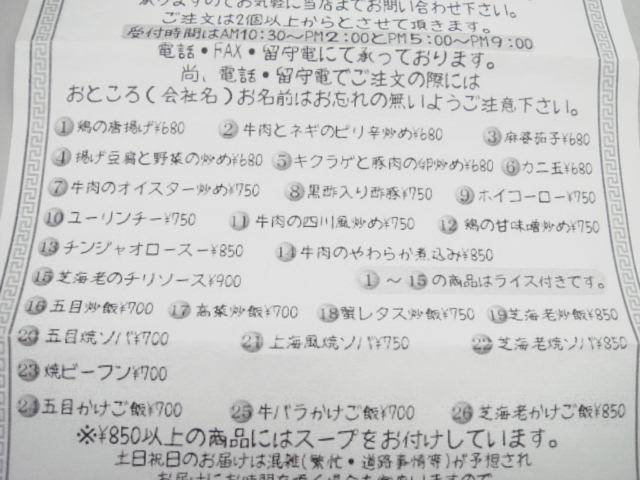 ご注文は2個以上からとさせて頂きます。
受付時間はAM10:30~PM2:00とPM5:00~PM9:00
電話・FAX・留守電にて承っております。
尚、電話・留守電でご注文の際には
おところ(会社名)お名前はお忘れの無いようご注意下さい。
① 鶏の唐揚げ¥680 ② 牛肉とネギのピリ辛炒め¥680 ③ 麻婆茄子¥680
④ 揚げ豆腐と野菜の炒め¥680 ⑤ キクラゲと豚肉の卵炒め¥680 ⑥ カニ玉¥680
⑦ 牛肉のオイスター炒め¥750 ⑧ 黒酢入り酢豚¥750 ⑨ ホイコーロー¥750
⑩ ユーリンチー¥750 ⑪ 牛肉の四川風炒め¥750 ⑫ 鶏の甘味噌炒め¥750
⑬ チンジャオロースー¥850 ⑭ 牛肉のやわらか煮込み¥850
⑮ 芝海老のチリソース¥900 ①~⑮の商品はライス付きです。
⑯ 五目炒飯¥700 ⑰ 高菜炒飯¥700 ⑱ 蟹レタス炒飯¥750 ⑲ 芝海老炒飯¥850
⑳ 五目焼ソバ¥700 ㉑ 上海風焼ソバ¥750 ㉒ 芝海老焼ソバ¥850
㉓ 焼ビーフン¥700
㉔ 五目かけご飯¥700 ㉕ 牛バラかけご飯¥700 ㉖ 芝海老かけご飯¥850
※¥850以上の商品にはスープをお付けしています。
土日祝日のお届けは混雑(繁忙・道路事情等)が予想され